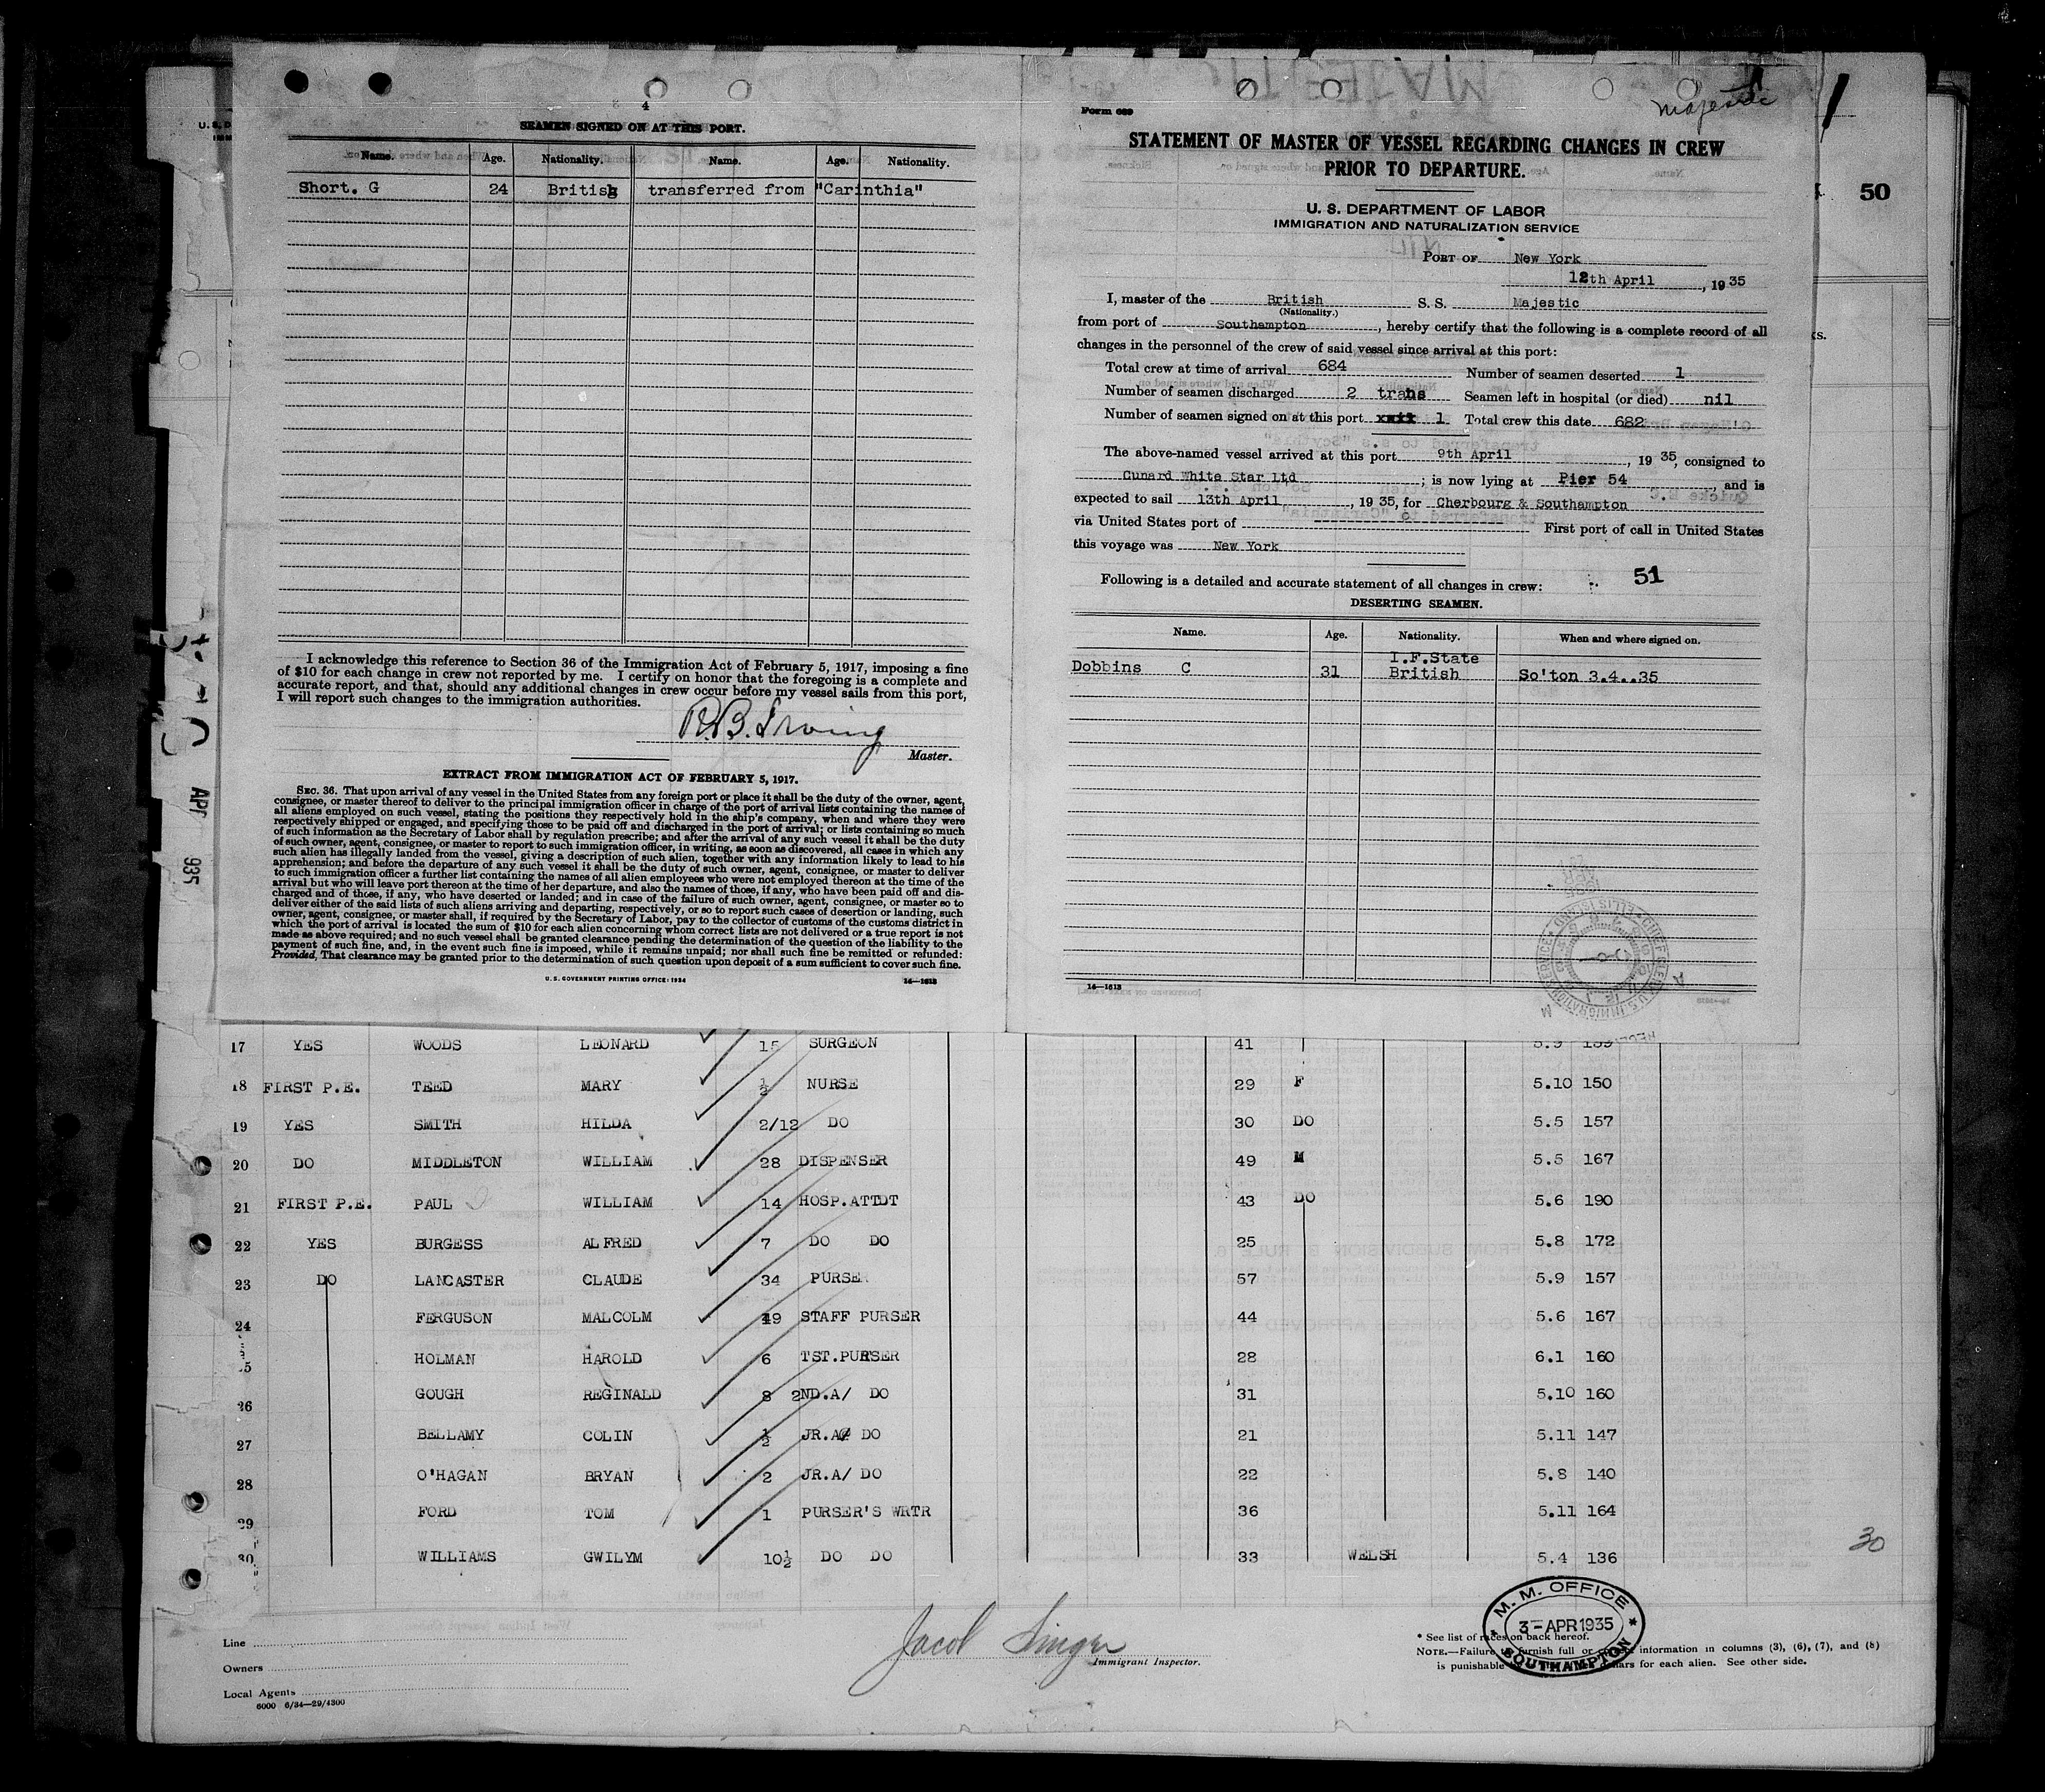 4
SEAMEN SIGNED ON AT THIS PORT.
Name. Age. Nationality. Name. Age. Nationality.
Short. G 24 British transferred from "Carinthia"
I acknowledge this reference to Section 36 of the Immigration Act of February 5, 1917, imposing a fine
of $10 for each change in crew not reported by me. I certify on honor that the foregoing is a complete and
accurate report, and that, should any additional changes in crew occur before my vessel sails from this port,
I will report such changes to the immigration authorities.
R.B. Irving
Master.
EXTRACT FROM IMMIGRATION ACT OF FEBRUARY 5, 1917.
SEC. 36. That upon arrival of any vessel in the United States from any foreign port or place it shall be the duty of the owner, agent,
consignee, or master thereof to deliver to the principal immigration officer in charge of the port of arrival lists containing the names of
all aliens employed on such vessel, stating the positions they respectively hold in the ship's company, when and where they were
respectively shipped or engaged, and specifying those to be paid off and discharged in the port of arrival; or lists containing so much
of such information as the Secretary of Labor shall by regulation prescribe; and after the arrival of any such vessel it shall be the duty
of such owner, agent, consignee, or master to report to such immigration officer, in writing, as soon as discovered, all cases in which any
such alien has illegally landed from the vessel, giving a description of such alien, together with any information likely to lead to his
apprehension; and before the departure of any such vessel it shall be the duty of such owner, agent, consignee, or master to deliver
to such immigration officer a further list containing the names of all alien employees who were not employed thereon at the time of the
arrival but who will leave port thereon at the time of her departure, and also the names of those, if any, who have been paid off and dis-
charged and of those, if any, who have deserted or landed; and in case of the failure of such owner, agent, consignee, or master so to
deliver either of the said lists of such aliens arriving and departing, respectively, or so to report such cases of desertion or landing, such
owner, agent, consignee, or master shall, if required by the Secretary of Labor, pay to the collector of customs of the customs district in
which the port of arrival is located the sum of $10 for each alien concerning whom correct lists are not delivered or a true report is not
made as above required; and no such vessel shall be granted clearance pending the determination of the question of the liability to the
payment of such fine, and, in the event such fine is imposed, while it remains unpaid; nor shall such fine be remitted or refunded:
Provided, That clearance may be granted prior to the determination of such question upon deposit of a sum sufficient to cover such fine.
U. S. GOVERNMENT PRINTING OFFICE: 1934 14—1613
Majestic
Form 689
STATEMENT OF MASTER OF VESSEL REGARDING CHANGES IN CREW
PRIOR TO DEPARTURE.
U. S. DEPARTMENT OF LABOR
IMMIGRATION AND NATURALIZATION SERVICE
PORT OF New York
12th April, 1935
I, master of the British S. S. Majestic
(Nationality.)
from port of Southampton, hereby certify that the following is a complete record of all
changes in the personnel of the crew of said vessel since arrival at this port:
Total crew at time of arrival 684 Number of seamen deserted 1
Number of seamen discharged 2 trans Seamen left in hospital (or died) nil
Number of seamen signed on at this port 1 Total crew this date 682
The above-named vessel arrived at this port 9th April, 1935, consigned to
Cunard White Star Ltd; is now lying at Pier 54, and is
expected to sail 13th April, 1935, for Cherbourg & Southampton
via United States port of First port of call in United States
this voyage was New York
Following is a detailed and accurate statement of all changes in crew: 51
DESERTING SEAMEN.
Name. Age. Nationality. When and where signed on.
Dobbins C 31 I.F.State
British So'ton 3.4..35
14—1613
50
Apr 935
17 YES WOODS LEONARD 15 SURGEON 41
18 FIRST P.E. TEED MARY ½ NURSE 29 F 5.10 150
19 YES SMITH HILDA 2/12 DO 30 DO 5.5 157
20 DO MIDDLETON WILLIAM 28 DISPENSER 49 M 5.5 167
21 FIRST P.E. PAUL WILLIAM 14 HOSP.ATTDT 43 DO 5.6 190
22 YES BURGESS ALFRED 7 DO DO 25 5.8 172
23 DO LANCASTER CLAUDE 34 PURSER 57 5.9 157
24 FERGUSON MALCOLM 19 STAFF PURSER 44 5.6 167
25 HOLMAN HAROLD 6 TST.PURSER 28 6.1 160
26 GOUGH REGINALD 8 2ND.A/ DO 31 5.10 160
27 BELLAMY COLIN ½ JR.A/ DO 21 5.11 147
28 O'HAGAN BRYAN 2 JR.A/ DO 22 5.8 140
29 FORD TOM 1 PURSER'S WRTR 36 5.11 164
30 WILLIAMS GWILYM 10½ DO DO 33 WELSH 5.4 136
30
Line
Owners
Local Agents
6000 6/34—29/4300
Jacob Singer
Immigrant Inspector.
M. M. OFFICE
3-APR 1935
SOUTHAMPTON
* See list of races on back hereof.
NOTE.—Failure to furnish full or information in columns (3), (6), (7), and (8)
is punishable dollars for each alien. See other side.